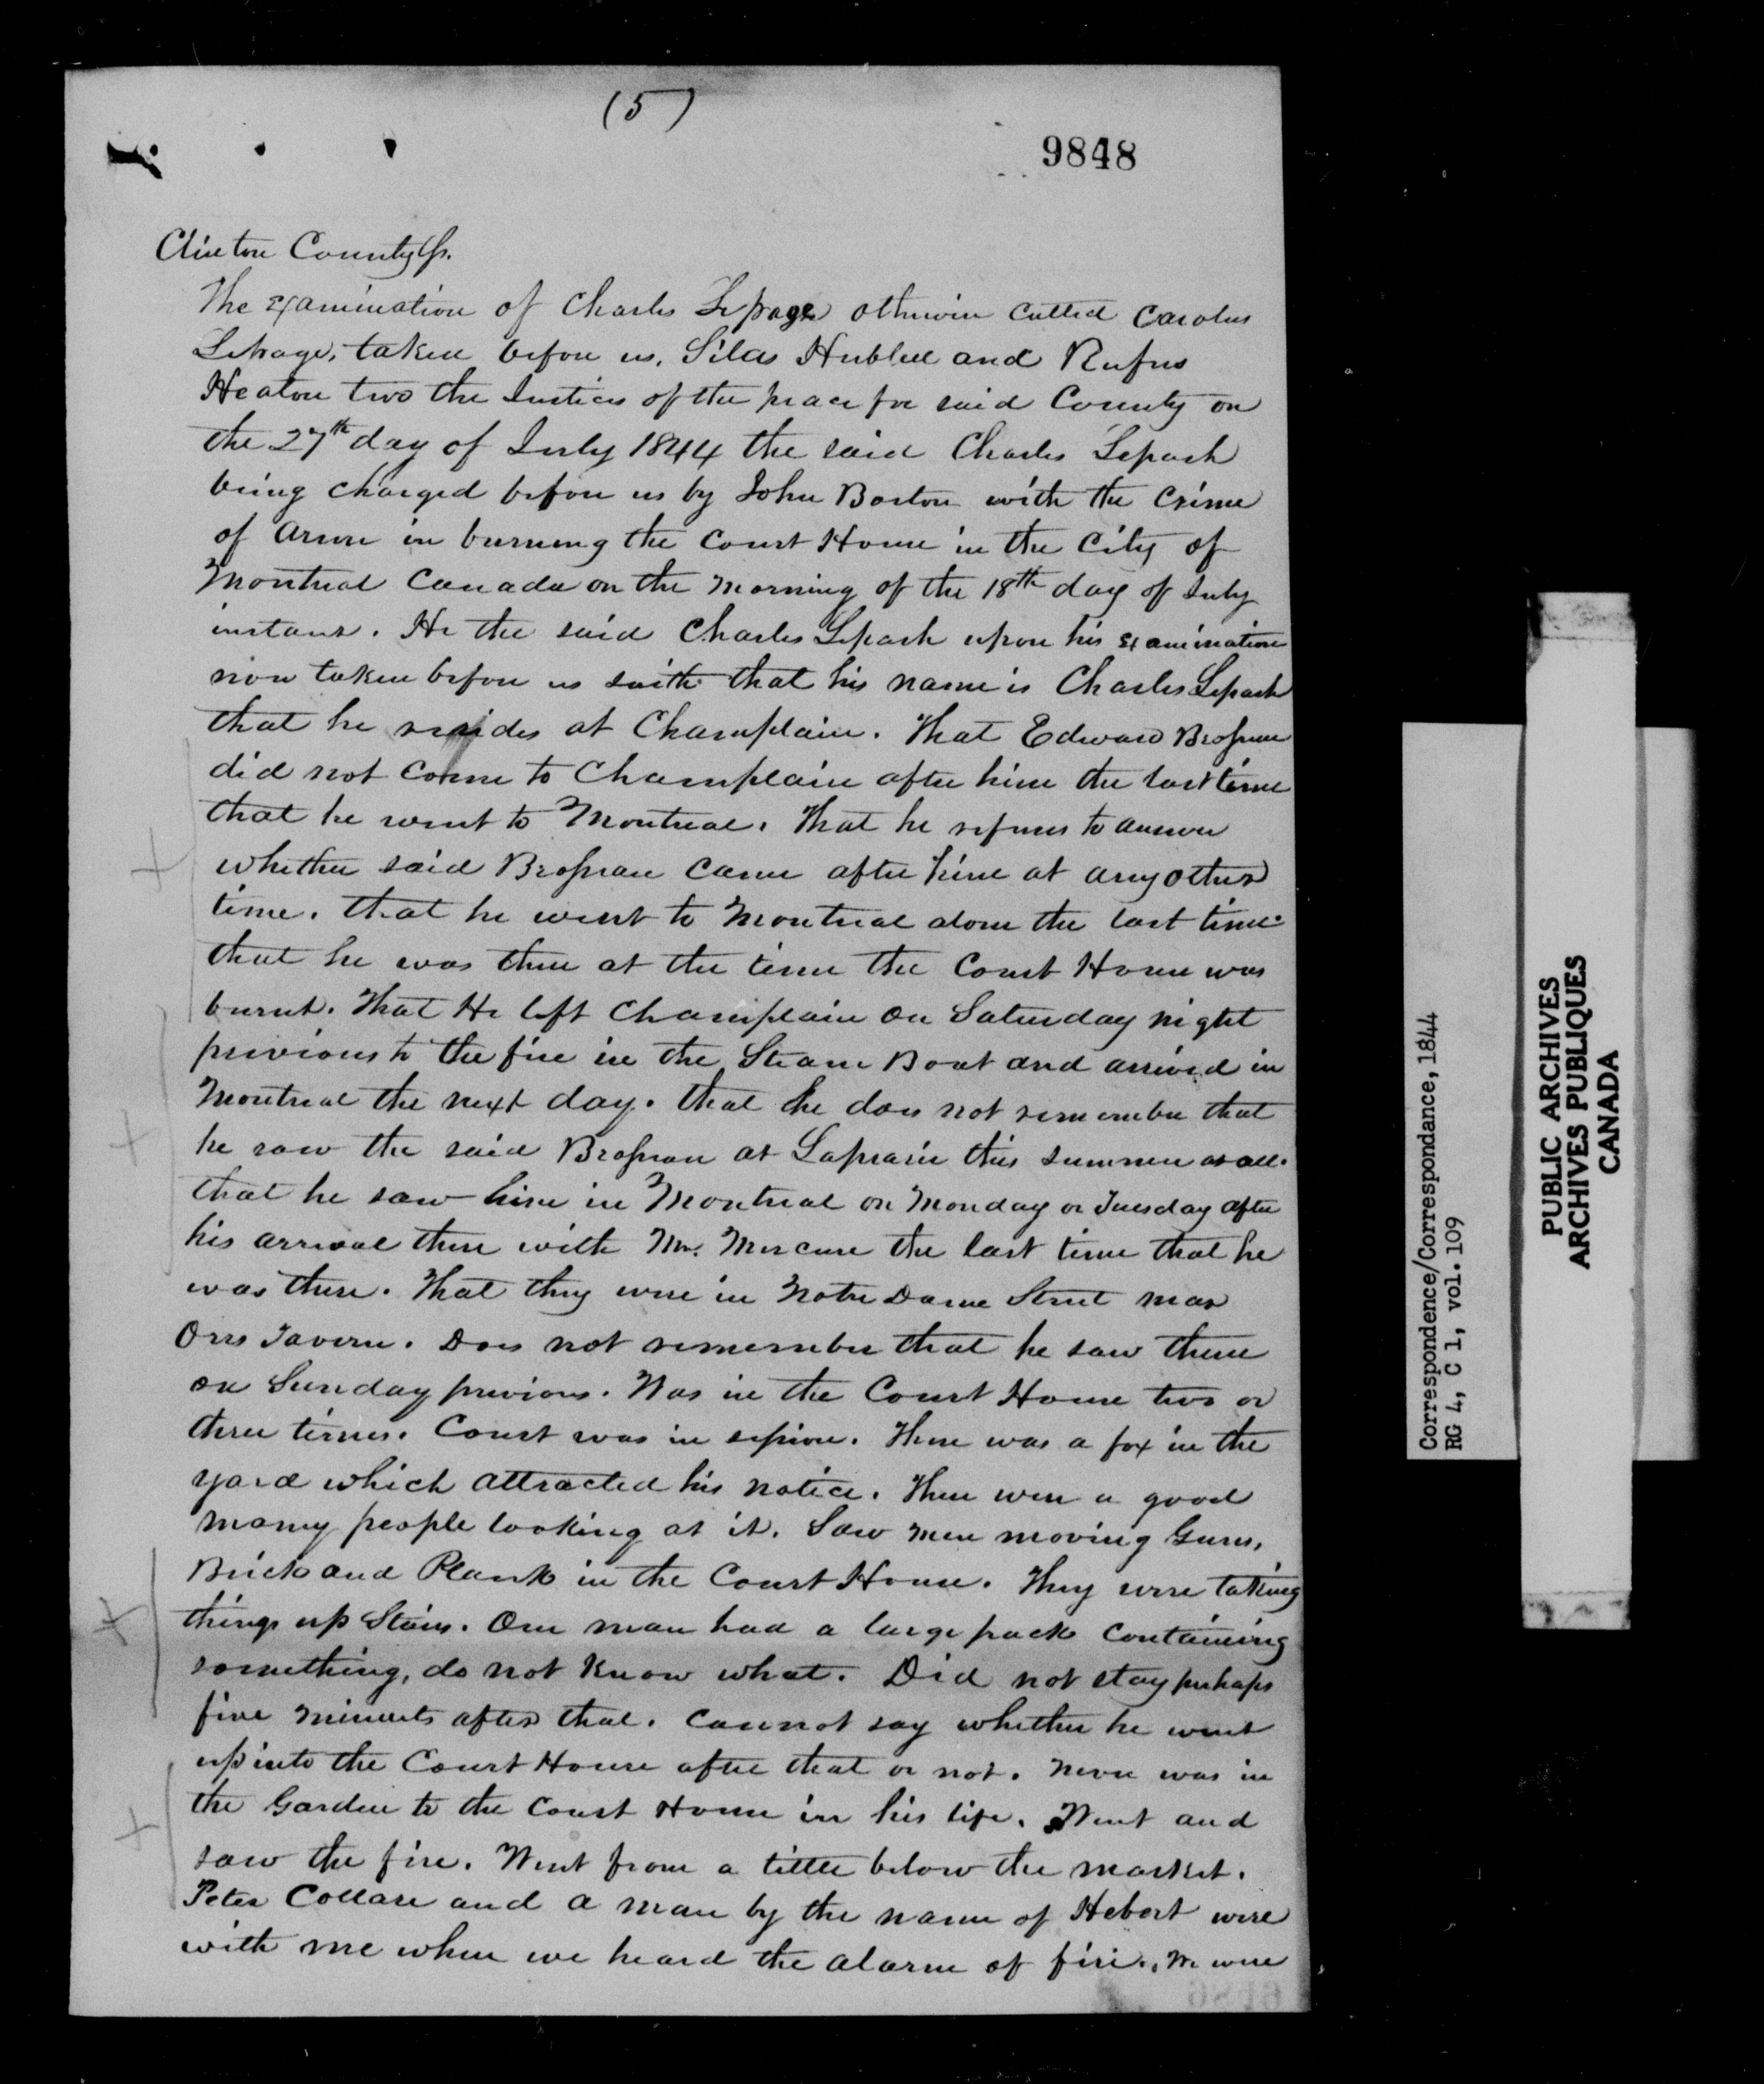 (5)
9848
Clinton County Ss.
The Examination of Charles Lepage otherwise called Carolus
Lepage, taken before us, Silas Hubbell and Rufus
Heaton two the Justices of the peace for said County on
the 27th day of July 1844 the said Charles Lepash
being charged before us by John Boston with the Crime
of Arson in burning the Court House in the City of
Montreal Canada on the Morning of the 18th day of July
instant. He the said Charles Lepash upon his Examination
now taken before us saith that his name is Charles Lepash
that he resides at Champlain. That Edward Brossean
did not come to Champlain after him the last time
that he went to Montreal. That he refuses to answer
whether said Brossean came after him at any other
time. that he went to Montreal alone the last time
that he was there at the time the Court House was
burnt. That He left Champlain on Saturday night
previous to the fire in the Steam Boat and arrived in
Montreal the next day. that he does not remember that
he saw the said Brossean at Laprarie this summer at all.
that he saw him in Montreal on Monday or Tuesday after
his arrival there with Mr. Mercure the last time that he
was there. That they were in Notre Dame Street near
Orrs Tavern. Does not remember that he saw them
on Sunday previous. Was in the Court House two or
three times. Court was in session. There was a fox in the
yard which attracted his notice. There were a good
many people looking at it. Saw men moving Guns,
Brick and Plank in the Court House. They were taking
things up Stairs. One man had a large pack containing
something, do not know what. Did not stay perhaps
five minuets after that. Cannot say whether he went
up into the Court House after that or not. Never was in
the Garden to the Court House in his life. Went and
saw the fire. Went from a little below the market.
Peter Collare and a man by the name of Hebert were
with me when we heard the alarm of fire. We were
Correspondence/Correspondance, 1844
RG 4, C 1, vol. 109
PUBLIC ARCHIVES
ARCHIVES PUBLIQUES
CANADA